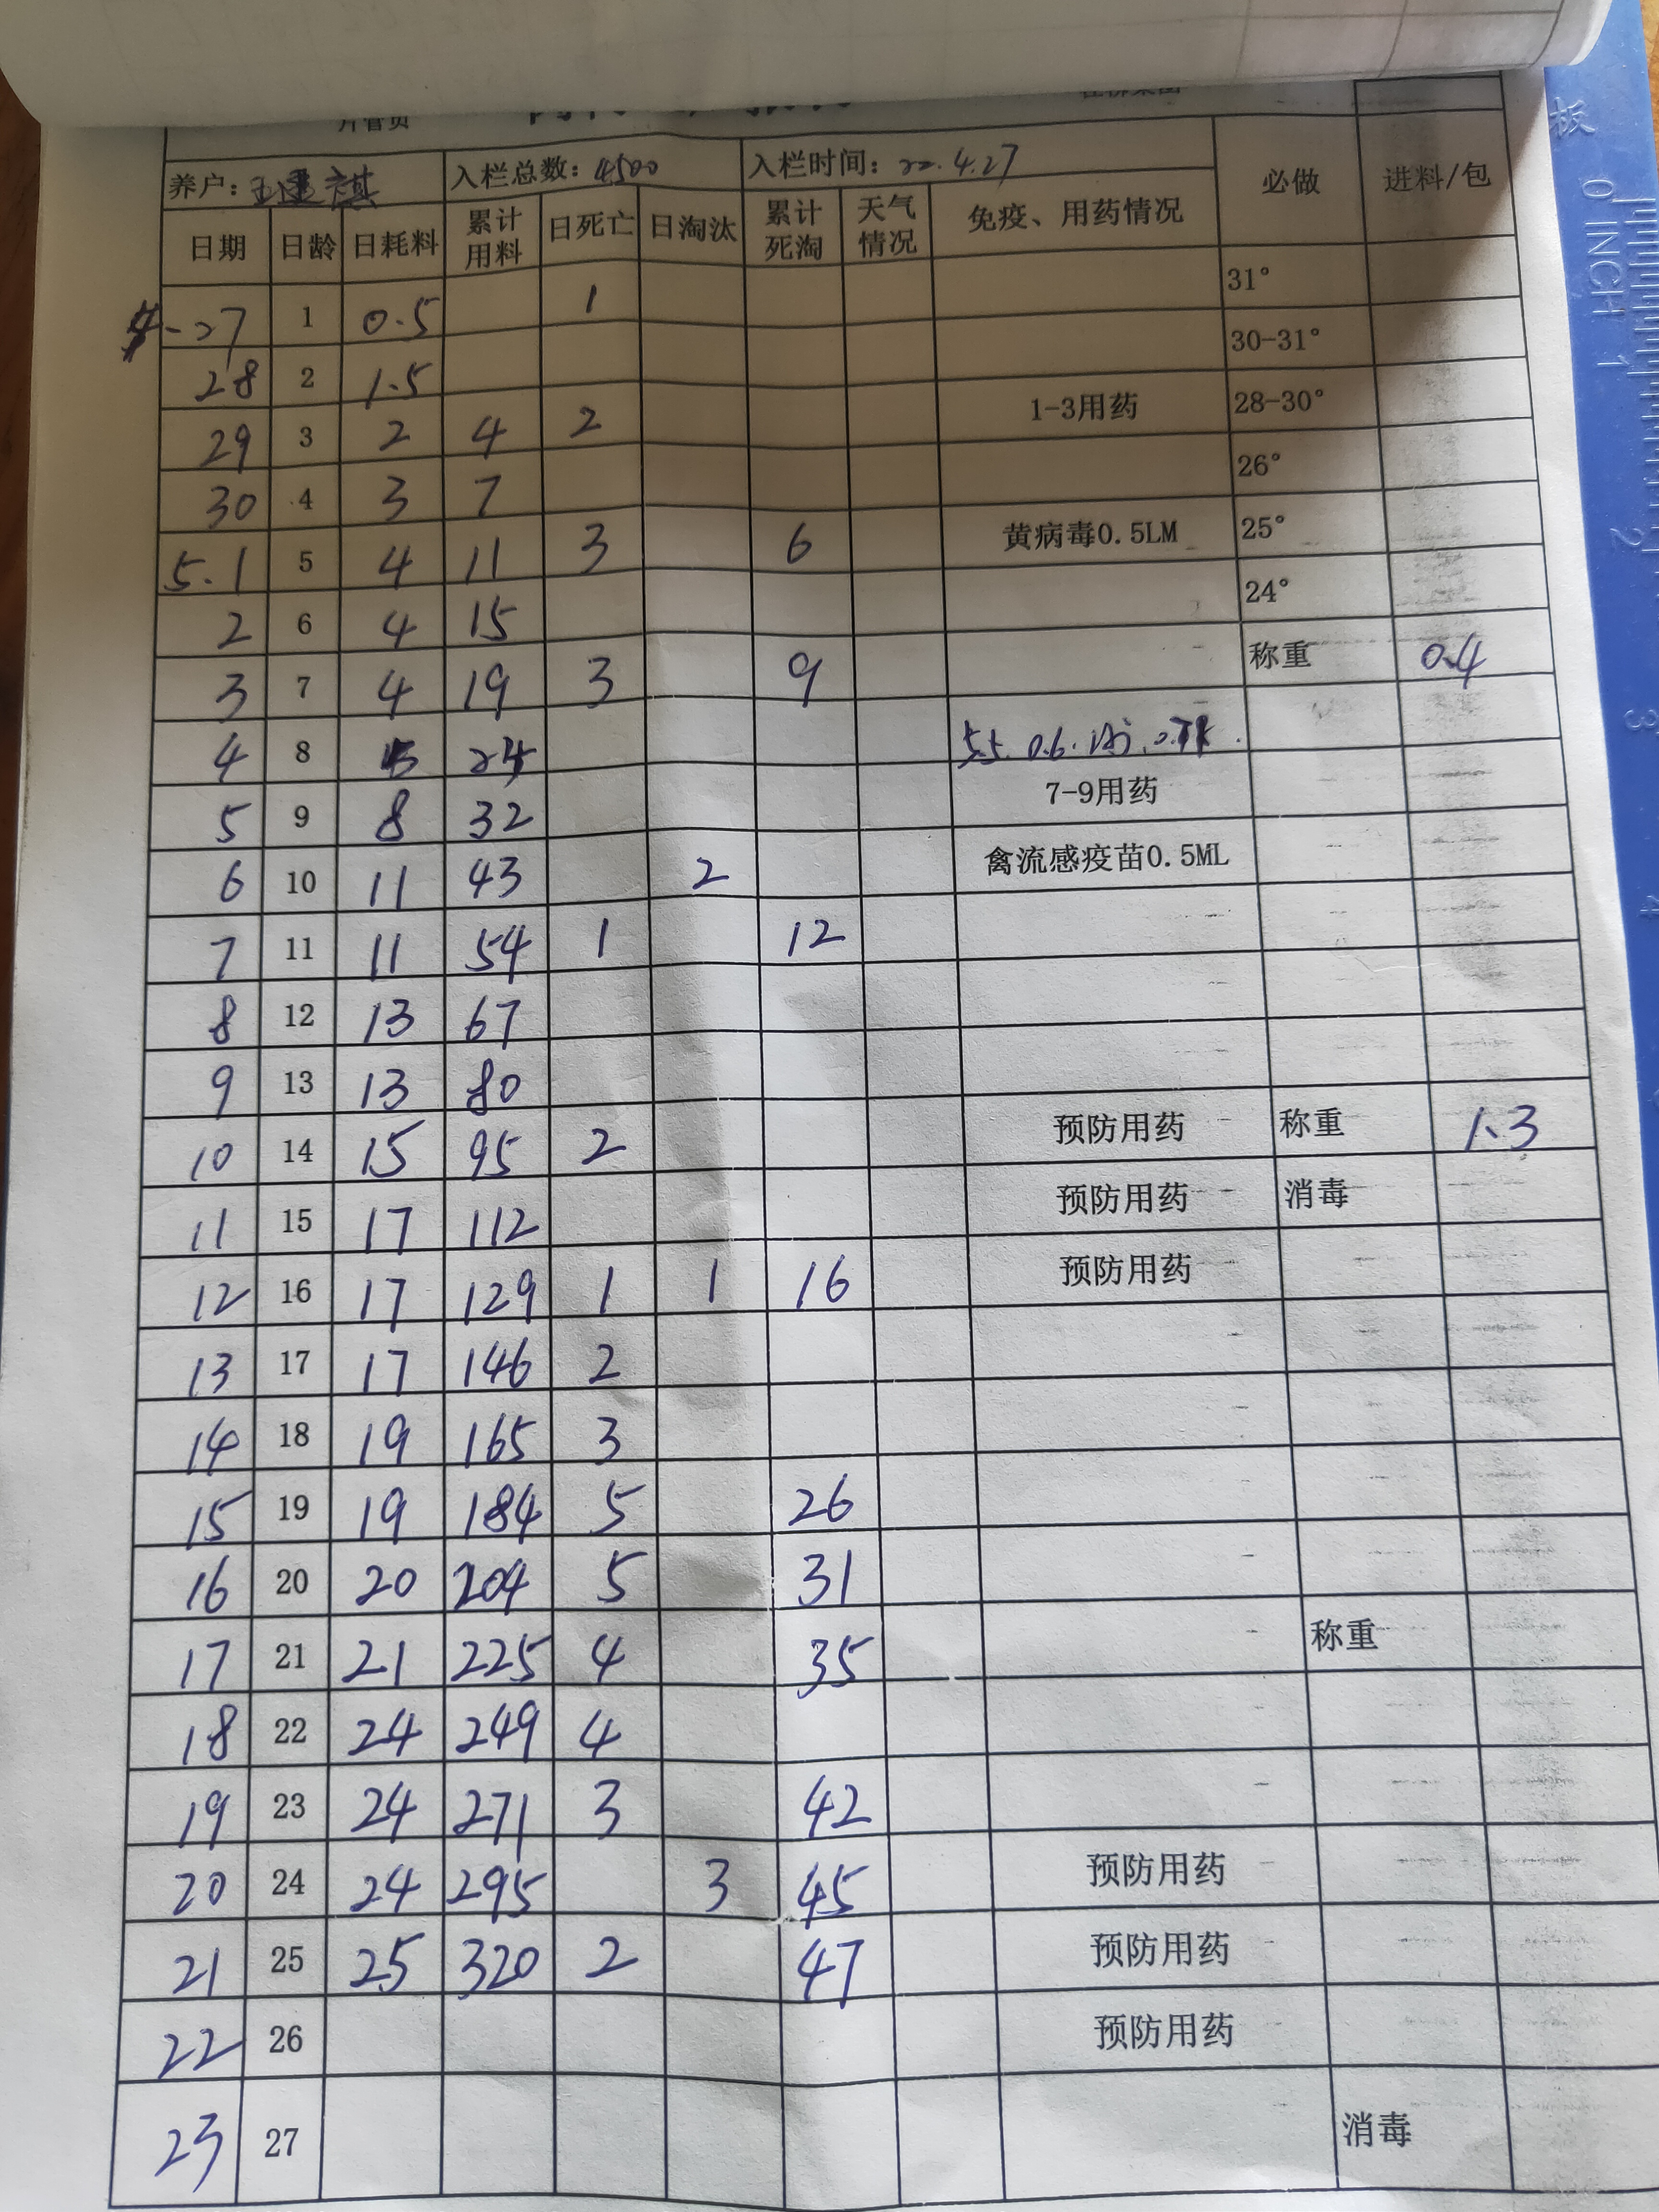 片管员
养户：王建祺 入栏总数：4500 入栏时间：22.4.27 必做 进料/包
日期 日龄 日耗料 累计用料 日死亡 日淘汰 累计死淘 天气情况 免疫、用药情况
4-27 1 0.5 1 31°
28 2 1.5 30-31°
29 3 2 4 2 1-3用药 28-30°
30 4 3 7 26°
5.1 5 4 11 3 6 黄病毒0.5LM 25°
2 6 4 15 24°
3 7 4 19 3 9 称重 0.4
4 8 5 24 5.5. 0.6.
5 9 8 32 7-9用药
6 10 11 43 2 禽流感疫苗0.5ML
7 11 11 54 1 12
8 12 13 67
9 13 13 80
10 14 15 95 2 预防用药 称重 1.3
11 15 17 112 预防用药 消毒
12 16 17 129 1 1 16 预防用药
13 17 17 146 2
14 18 19 165 3
15 19 19 184 5 26
16 20 20 204 5 31
17 21 21 225 4 35 称重
18 22 24 249 4
19 23 24 271 3 42
20 24 24 295 3 45 预防用药
21 25 25 320 2 47 预防用药
22 26 预防用药
23 27 消毒
板
0 INCH 1
2
3
4